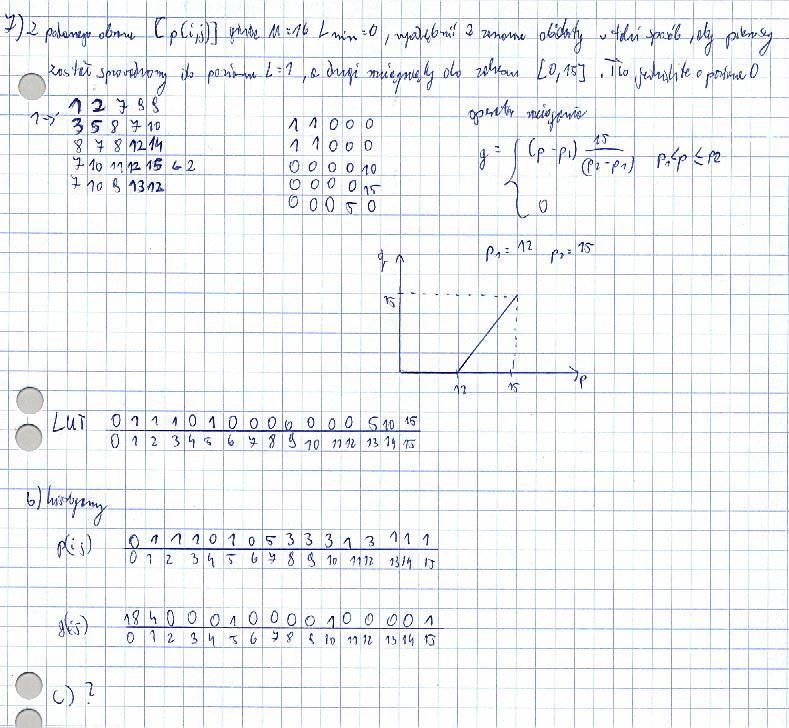 7) Z podanego obrazu [p(i,j)] gdzie M=16 Lmin=0, wyodrębnić 2 obiekty w taki sposób, aby pierwszy
został sprowadzony do poziomu L=1, a drugi rozciągnięty do zakresu [0,15]. Tło jednolite o poziomie 0
1 2 7 9 9
1->
3 5 8 7 10
8 7 8 12 14
7 10 11 12 15 6 2
7 10 9 13 12
1 1 0 0 0
1 1 0 0 0
0 0 0 0 10
0 0 0 0 15
0 0 0 5 0
operator rozciągania
q = { (p-p1) 15/(p2-p1) p1<p≤p2
0
p1=12 p2=15
q
15
12 15 p
LUT 0 1 1 1 0 1 0 0 0 0 0 0 0 5 10 15
0 1 2 3 4 5 6 7 8 9 10 11 12 13 14 15
b) histogramy
p(ij) 0 1 1 1 0 1 0 5 3 3 3 1 3 1 1 1
0 1 2 3 4 5 6 7 8 9 10 11 12 13 14 15
g(ij) 18 4 0 0 0 1 0 0 0 0 1 0 0 0 0 1
0 1 2 3 4 5 6 7 8 9 10 11 12 13 14 15
c) ?